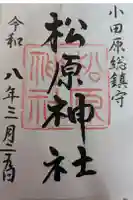 小田原総鎮守
松原神社
令和八年三月二五日